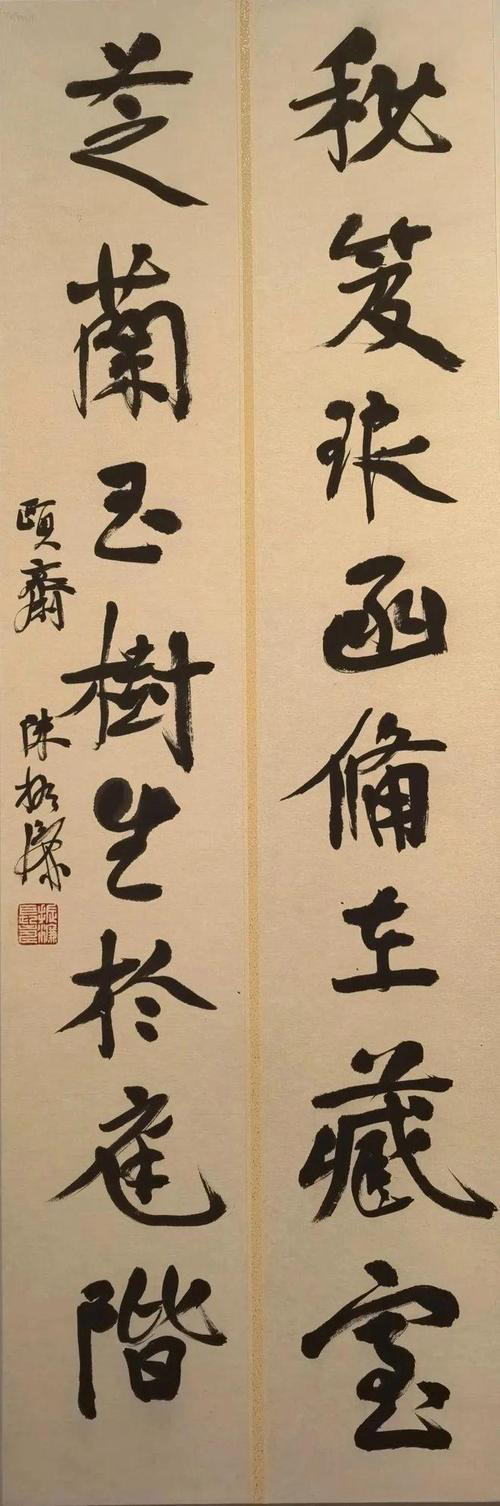 秘笈琅函備在藏室
芝蘭玉樹生於庭階
頤齋 陳振濂